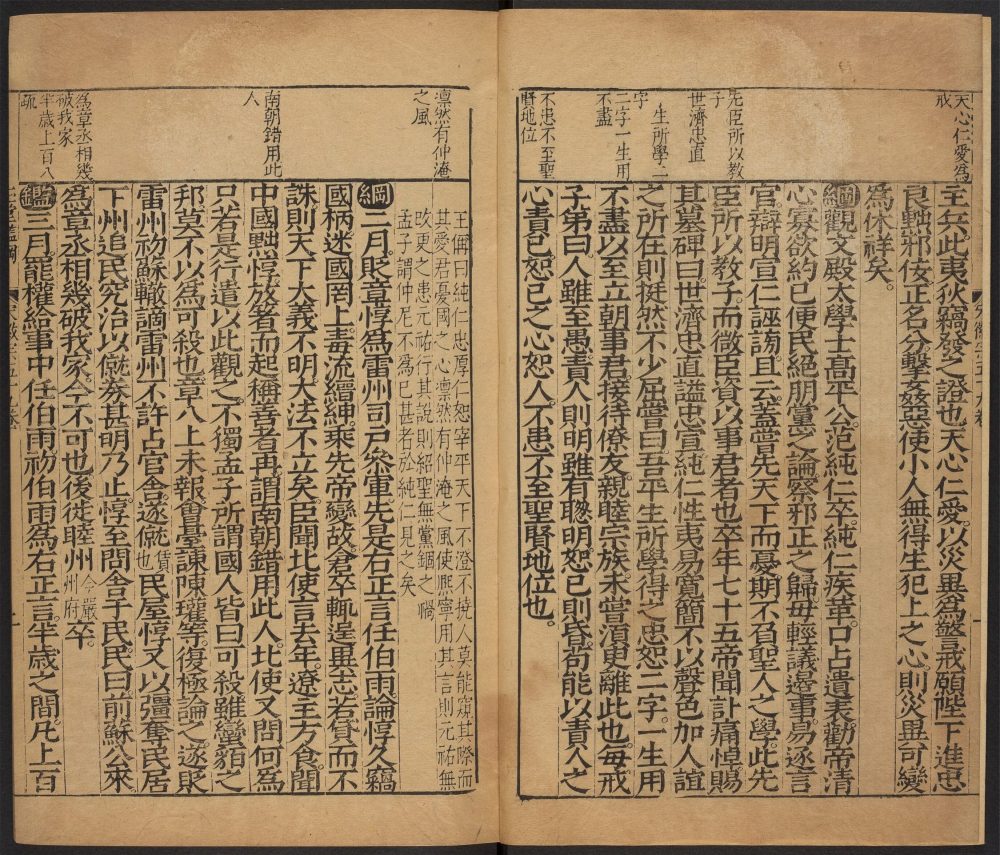 天心仁愛為
戒
先臣所以教
子
世濟忠直
生所學二
字
二字一生用
不盡
不患不至聖
賢地位
主兵此夷狄竊發之證也天心仁愛以災異為警戒願陛下進忠
良黜邪佞正名分擊姦惡使小人無得生犯上之心則災異可變
為休祥矣。
綱觀文殿大學士高平公范純仁卒純仁疾革口占遺表勸帝清
心寡欲約己便民絕朋黨之論察邪正之歸毋輕議邊事易逐言
官辯明宣仁誣謗且云蓋嘗先天下而憂期不負聖人之學此先
臣所以教子而微臣資以事君者也卒年七十五帝聞訃痛悼賜
其墓碑曰世濟忠直謚忠宣純仁性夷易寬簡不以聲色加人誼
之所在則挺然不少屈嘗曰吾平生所學得之忠恕二字一生用
不盡以至立朝事君接待僚友親睦宗族未嘗須臾離此也每戒
子弟曰人雖至愚責人則明雖有聰明恕己則昏苟能以責人之
心責己恕己之心恕人不患不至聖賢地位也。
凛然有仲淹
之風
南朝錯用此
人
為章丞相幾
被我家
半歲上百八
疏
王偁曰純仁忠厚仁恕宰平天下不澄不撓人莫能窺其際而
其愛君憂國之心凛然有仲淹之風使熙寧用其言則元祐無
改更之患元祐行其說則紹聖無黨錮之禍
孟子謂仲尼不為已甚者於純仁見之矣
綱二月貶章惇為雷州司戶參軍先是右正言任伯雨論惇久竊
國柄迷國罔上毒流縉紳乘先帝變故倉卒輒逞異志若貸而不
誅則天下大義不明大法不立矣臣聞北使言去年遼主方食聞
中國黜惇放箸而起稱善者再謂南朝錯用此人北使又問何為
只若是行遣以此觀之不獨孟子所謂國人皆曰可殺雖蠻貊之
邦莫不以為可殺也章八上未報會臺諫陳瓘等復極論之遂貶
雷州初蘇轍謫雷州不許占官舍遂僦賃也民屋惇又以彊奪民居
下州追民究治以僦券甚明乃止惇至問舍于民民曰前蘇公來
為章丞相幾破我家今不可也後徙睦州今嚴州府卒。
鑑三月罷權給事中任伯雨初伯雨為右正言半歲之間凡上百